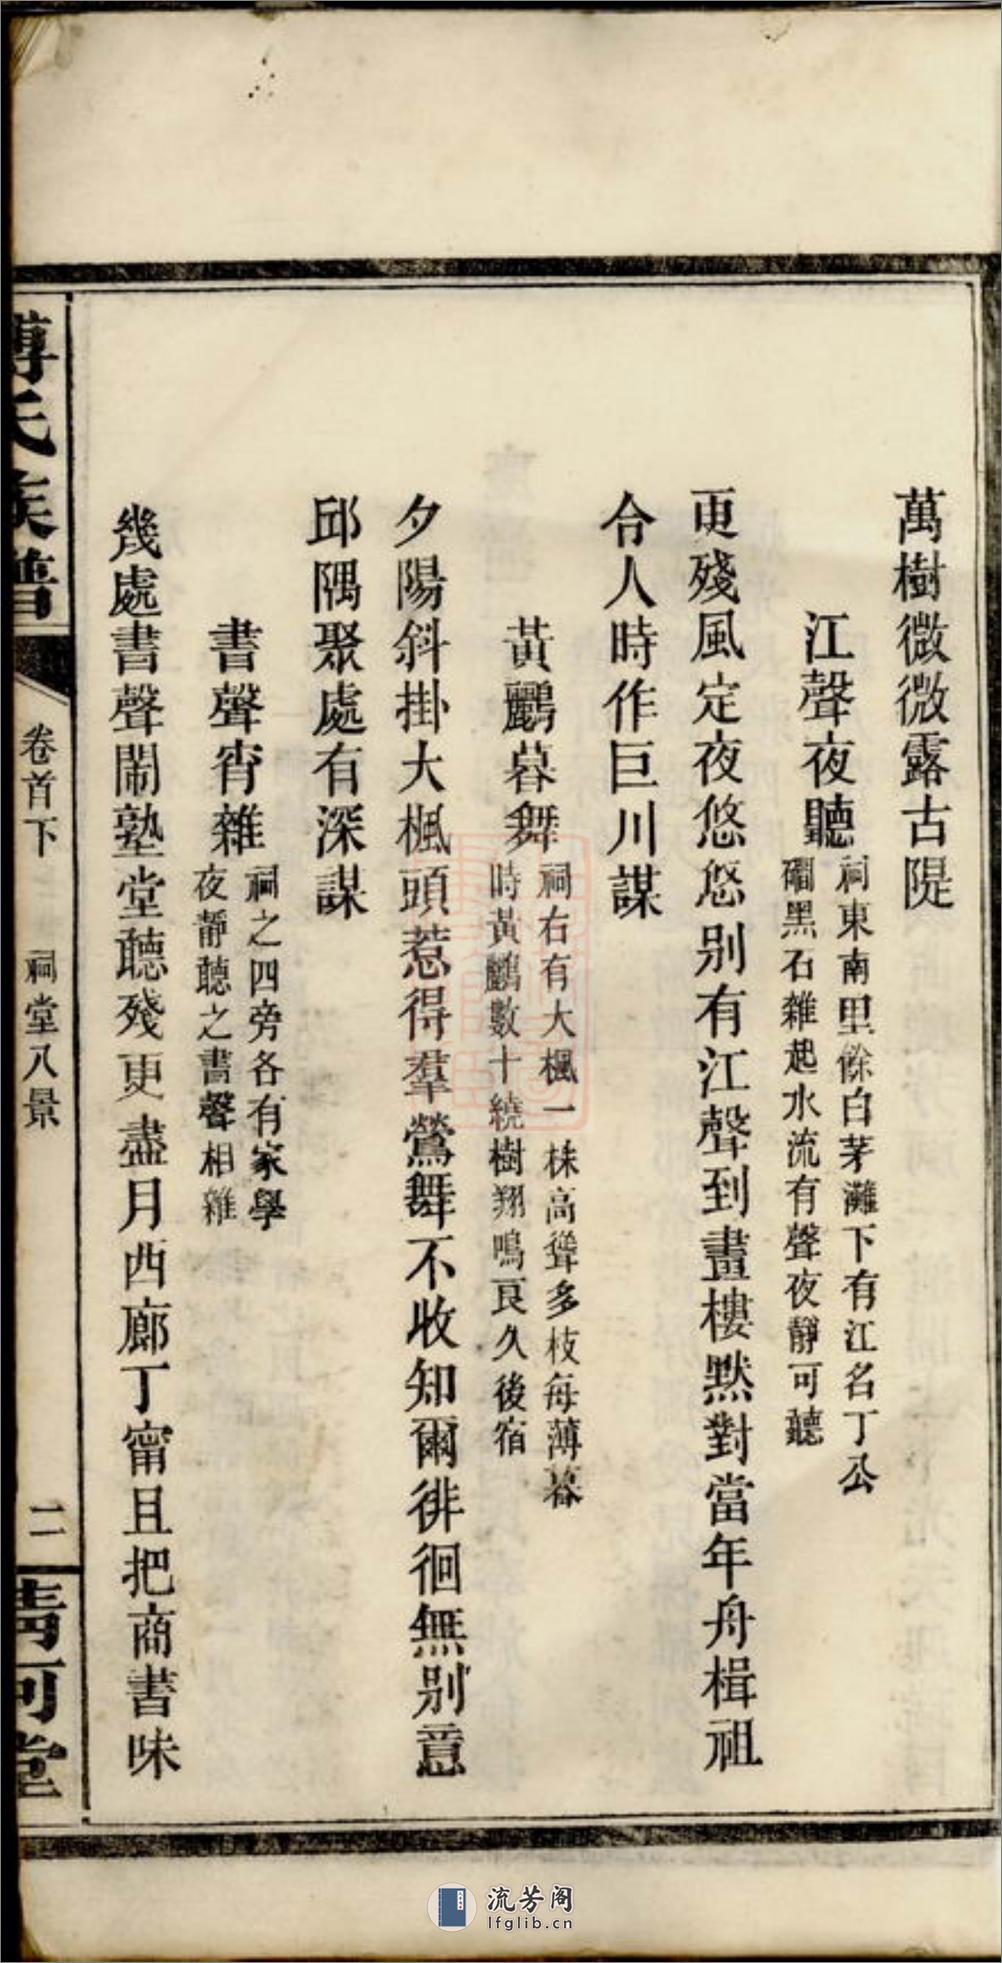 萬樹微微露古隄
江聲夜聽
祠東南里餘白茅灘下有江名丁公
磵黑石雜起水流有聲夜靜可聽
更殘風定夜悠悠別有江聲到畫樓默對當年舟楫祖
令人時作巨川謀
黃鸝暮舞
祠右有大楓一株高聳多枝每薄暮
時黃鸝數十繞樹翔鳴良久後宿
夕陽斜掛大楓頭惹得羣鶯舞不收知爾徘徊無別意
邱隅聚處有深謀
書聲宵雜
祠之四旁各有家學
夜靜聽之書聲相雜
幾處書聲鬧塾堂聽殘更盡月西廊丁甯且把商書味
傅氏族譜
卷首下
祠堂八景
二
清河堂
流芳阁
lfglib.cn